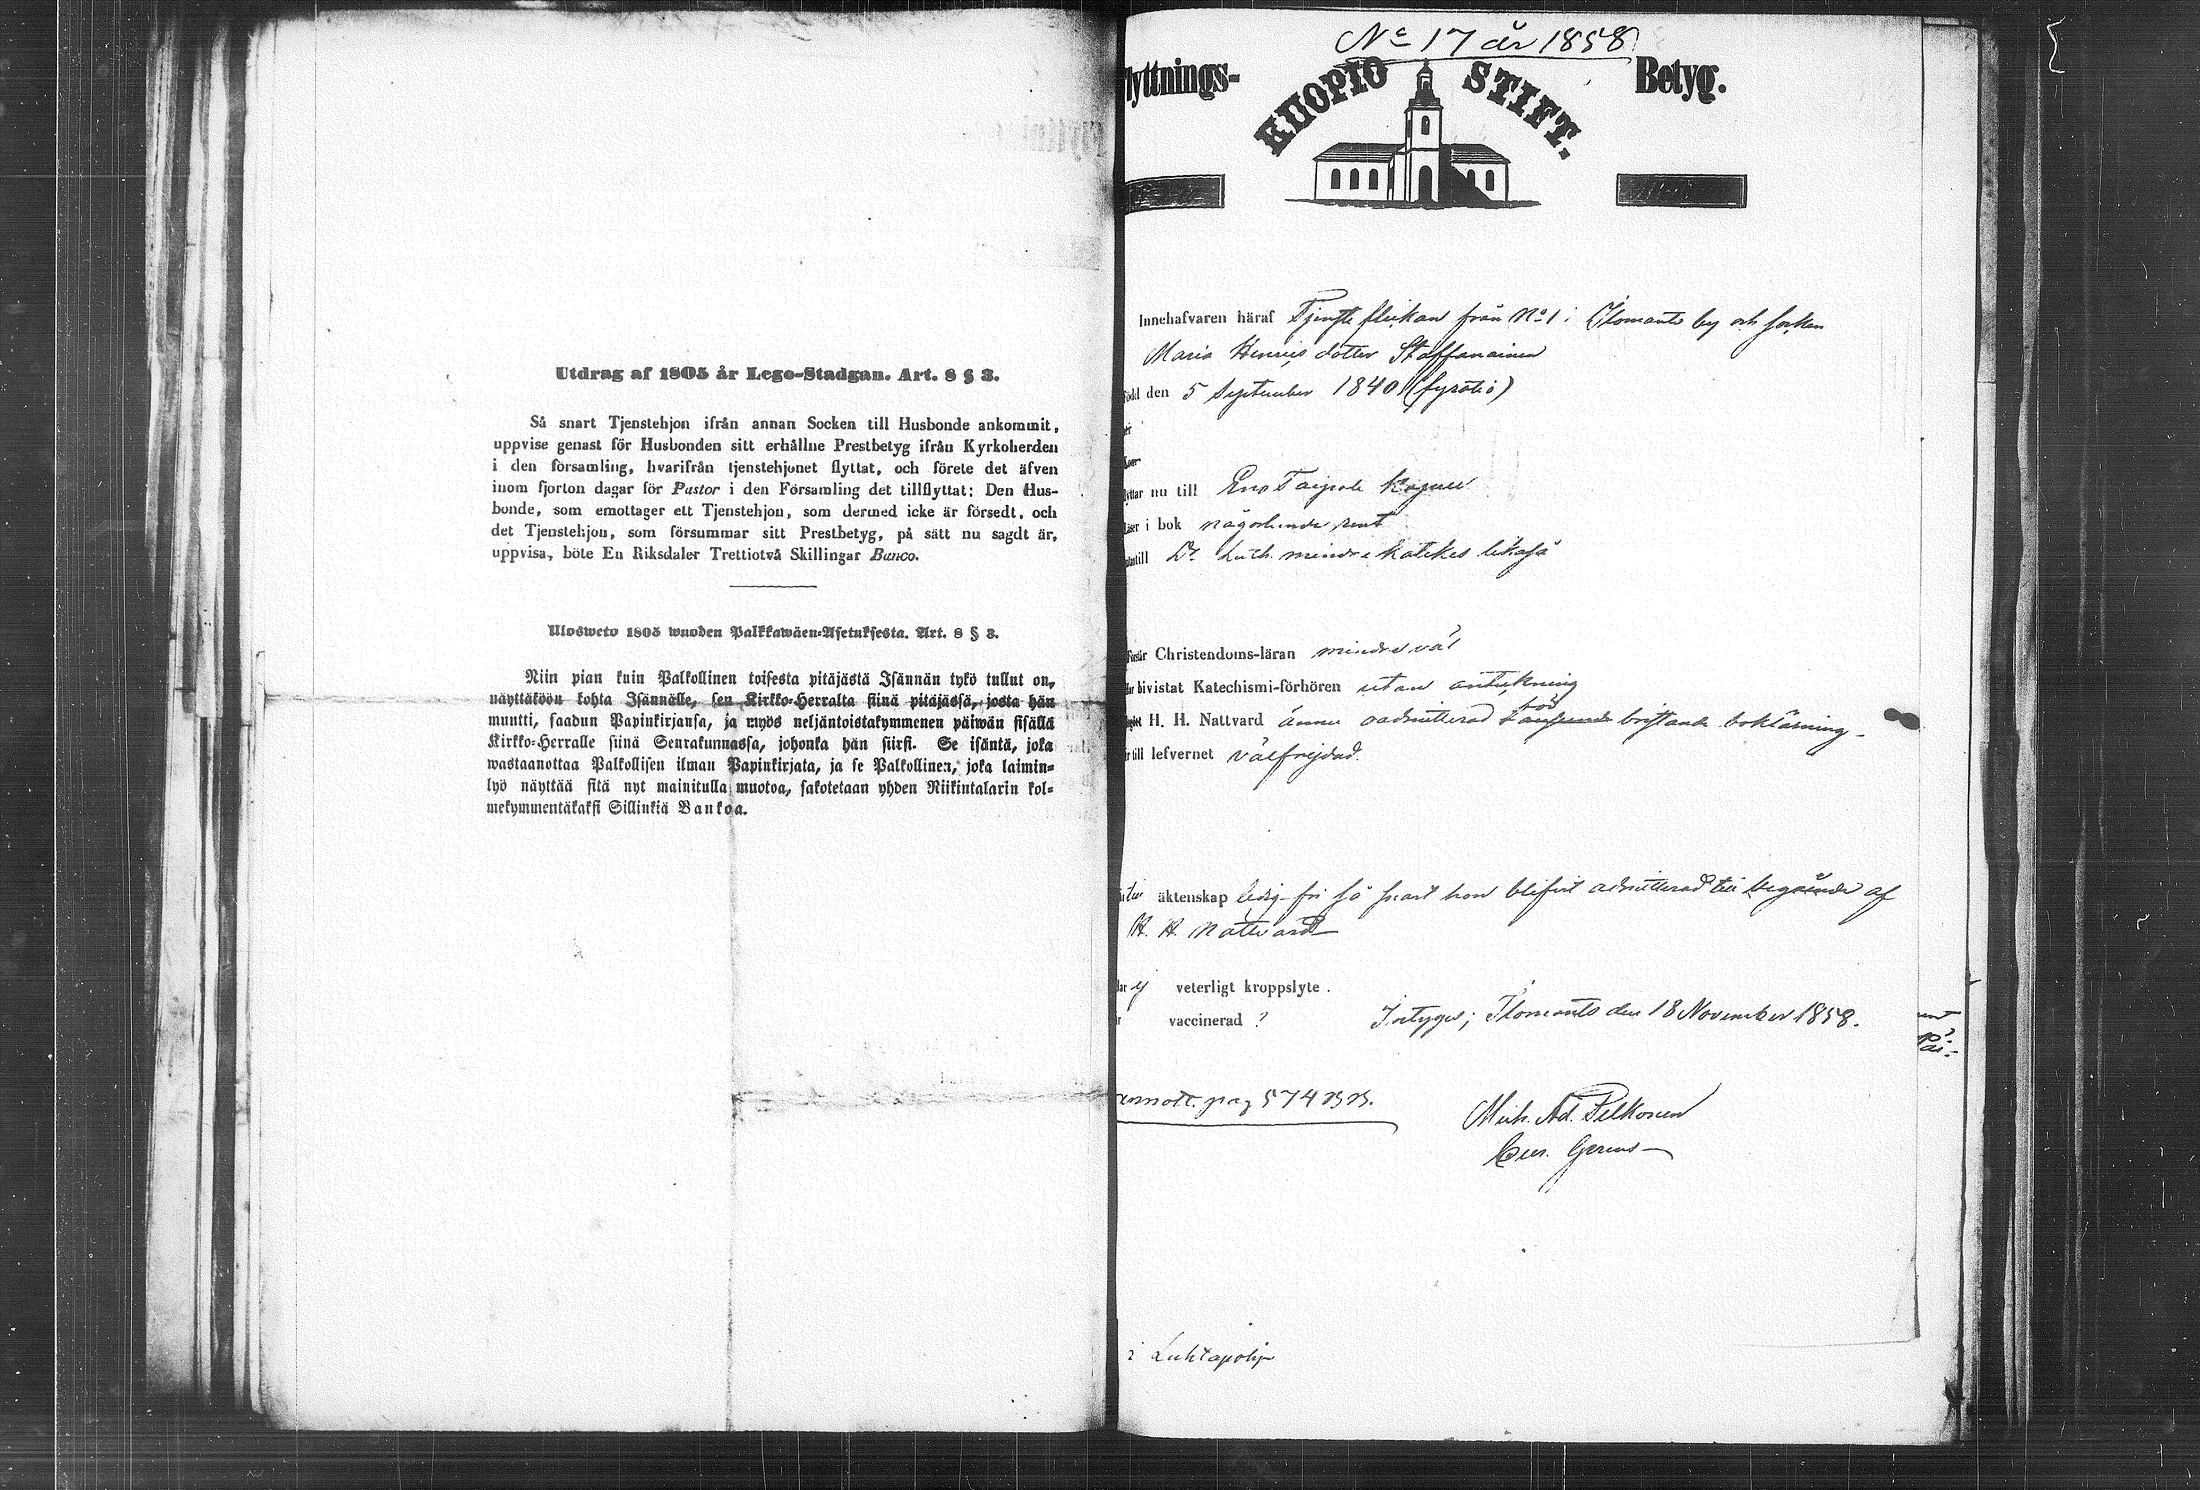 Utdrag af 1805 år Lego-Stadgan. Art. 8 § 3.
Så snart Tjenstehjon ifrån annan Socken till Husbonde ankommit,
uppvise genast för Husbonden sitt erhållne Prestbetyg ifrån Kyrkoherden
i den församling, hvarifrån tjenstehjonet flyttat, och förete det äfven
inom fjorton dagar för Pastor i den Församling det tillflyttat: Den Hus-
bonde, som emottager ett Tjenstehjon, som dermed icke är försedt, och
det Tjenstehjon, som försummar sitt Prestbetyg, på sätt nu sagdt är,
uppvisa, böte En Riksdaler Trettiotvå Skillingar Banco.
Ulosweto 1805 wuoden Palkkawäen-Asetuksesta. Art. 8 § 3.
Niin pian kuin Palkollinen toisesta pitäjästä Isännän tykö tullut on,
näyttäköön kohta Isännälle, sen Kirkko-Herralta siinä pitäjässä, josta hän
muutti, saadun Papinkirjansa, ja myös neljäntoistakymmenen päiwän sisällä
Kirkko-Herralle siinä Seurakunnassa, johonka hän siirsi. Se isäntä, joka
wastaanottaa Palkollisen ilman Papinkirjata, ja se Palkollinen, joka laimin-
lyö näyttää sitä nyt mainitulla muotoa, sakotetaan yhden Riikintalarin kol-
mekymmentäkaksi Sillinkiä Bankoa.
No 17 år 1858
lyttnings- KUOPIO STIFT. Betyg.
Innehafvaren häraf Tjenste flickan från No 1 i Ilomants by och socken
Maria Henrics dotter Staffanainen
född den 5 September 1840 (fyratio)
nu till Eno Taipale Kapell
i bok någorlunda rent
till Dr Luth. mindre katekes likaså
Christendoms-läran mindre väl
bivistat Katechismi-förhören utan anteckning
H. H. Nattvard ännu oadmitterad för bristande boklärning
till lefvernet välfrejdad.
äktenskap ledig fri så snart hon blifvit admitterad till begående af
H. H. Nattvard
ej veterligt kroppslyte.
vaccinerad ? Intygar; Ilomants den 18 November 1858.
pag 574
Mich. Ad. Pelkonen
i Luhtapohja